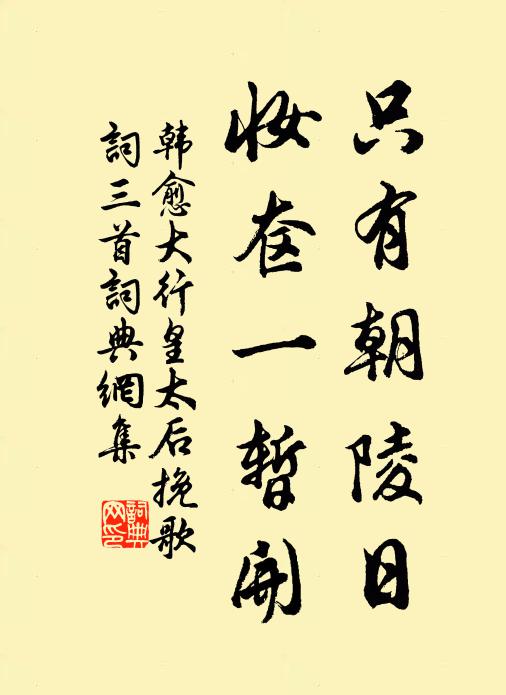 只有朝陵日
妆奁一暂開
韩愈大行皇太后挽歌
詞三首詞典網集
詞典网印